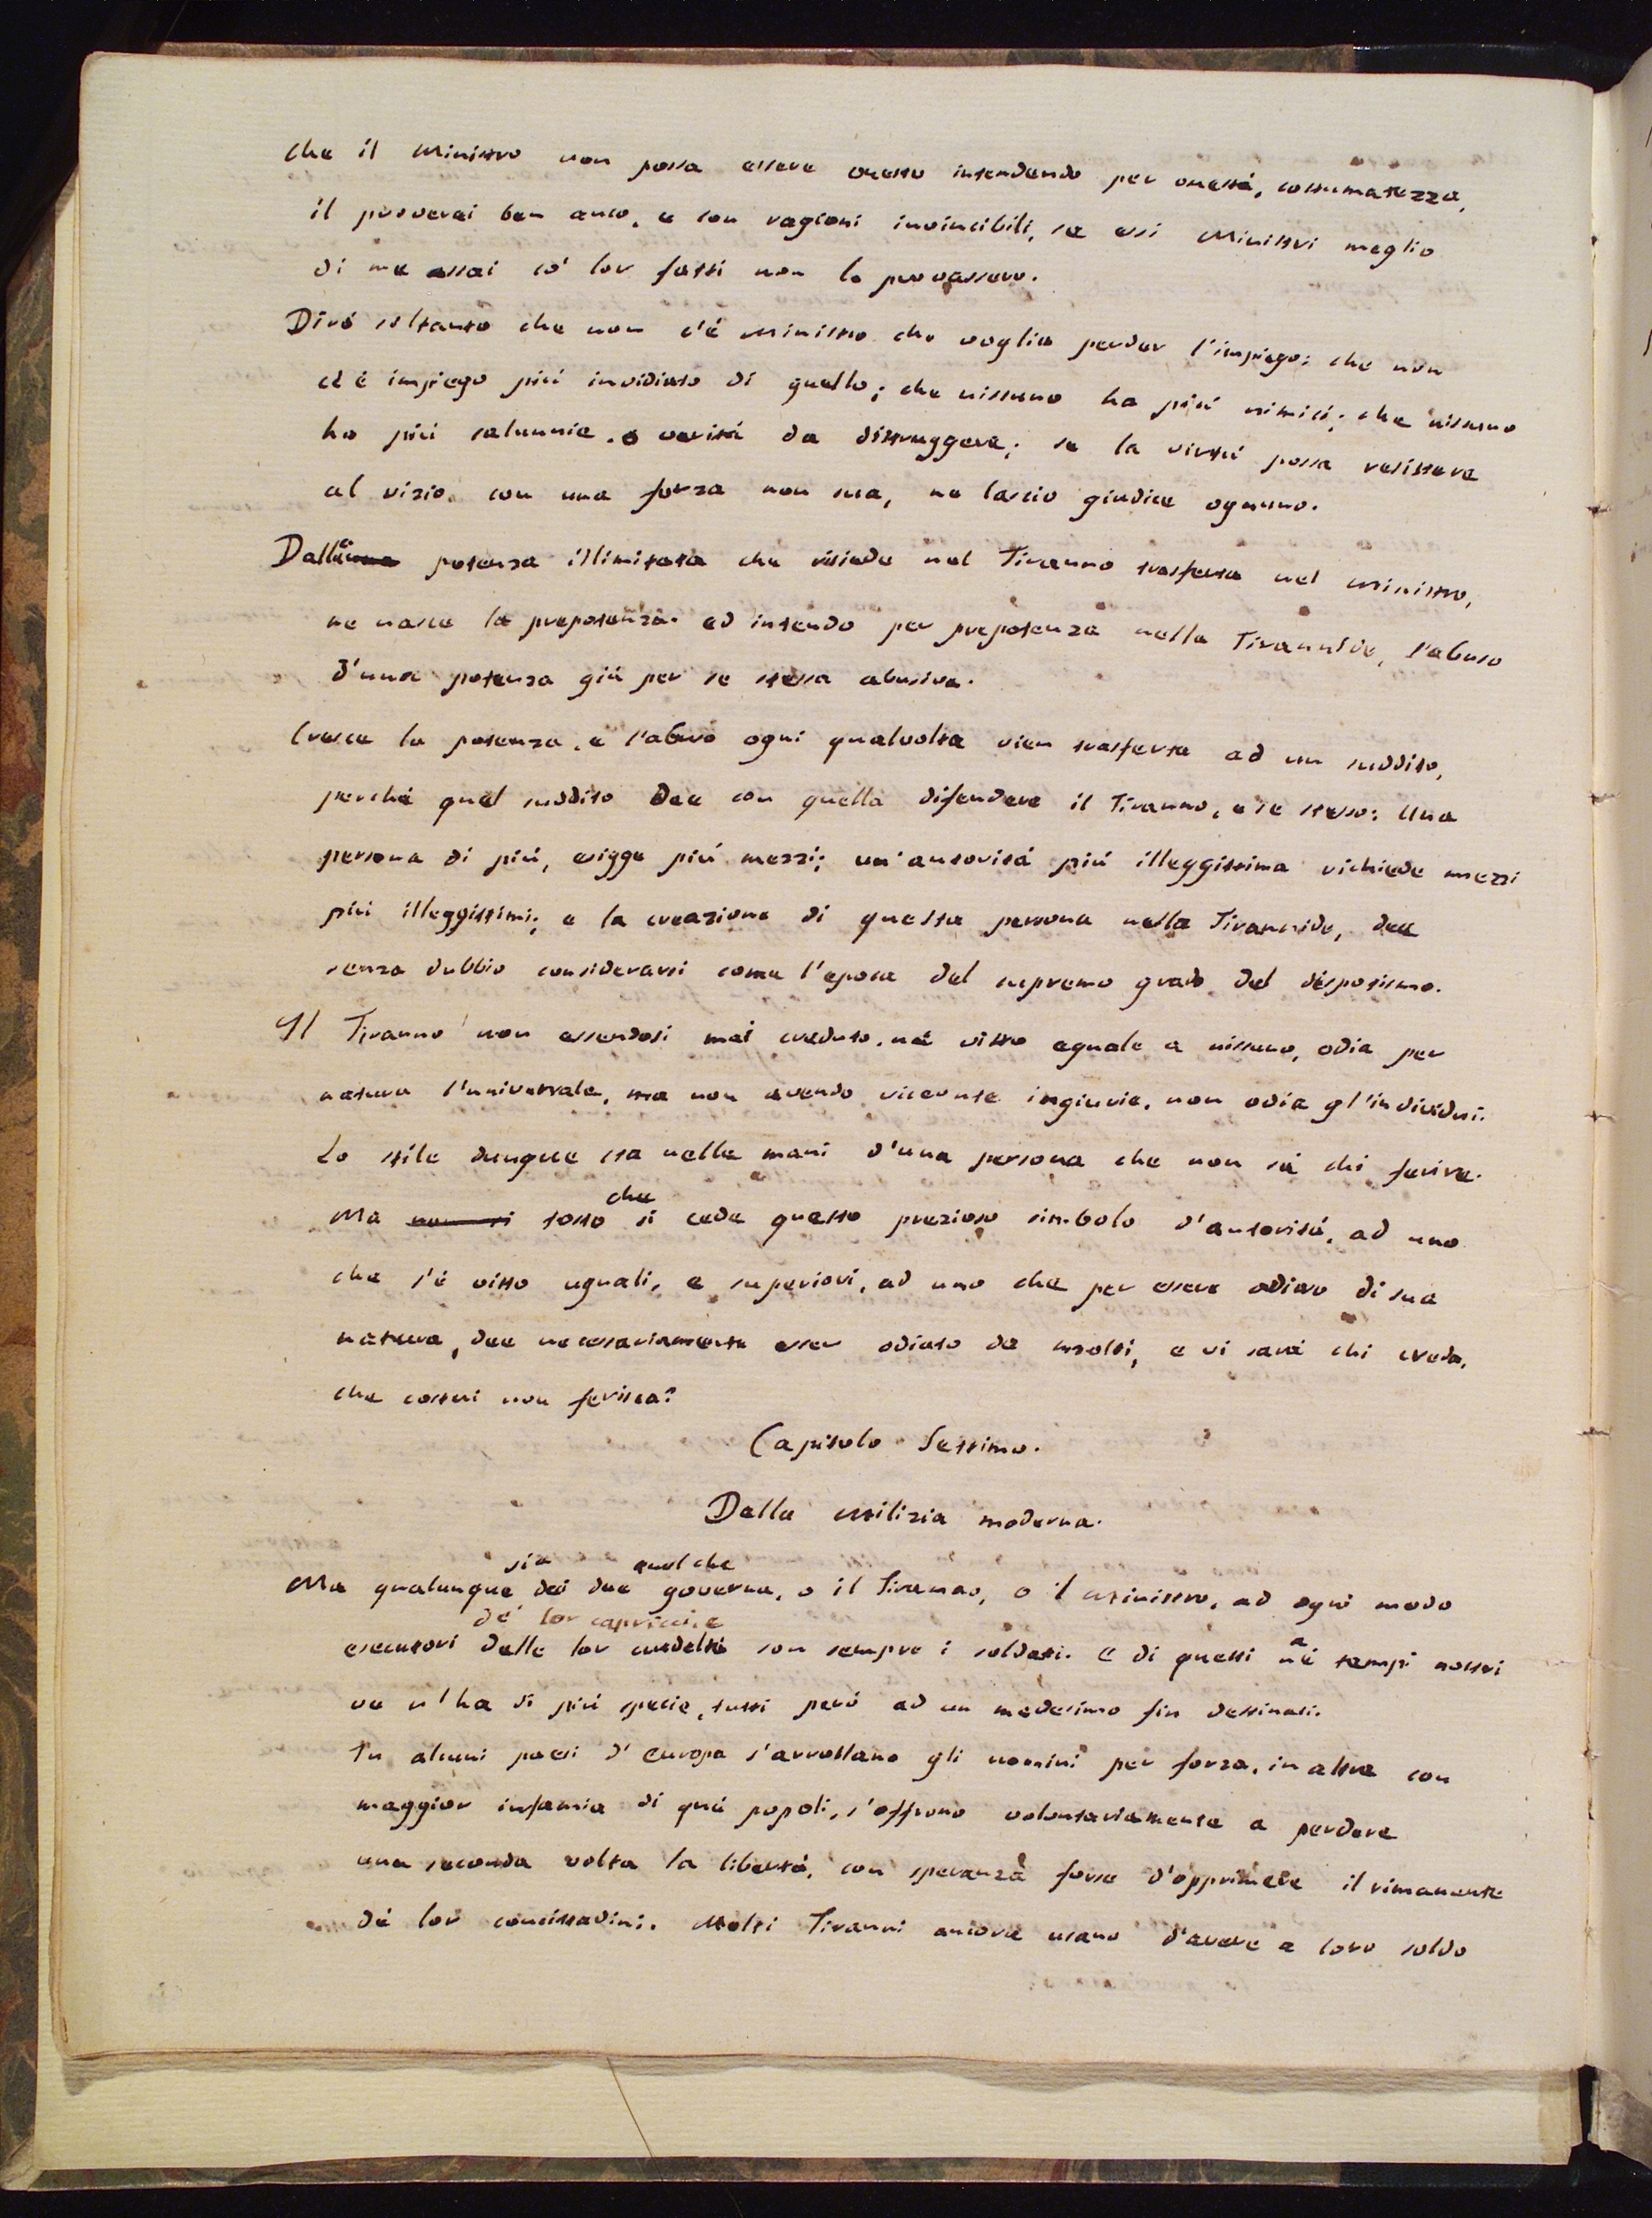 Che il Ministro non possa essere onesto intendendo per onestá, costumatezza,
il proverei ben anco, e con ragioni invincibili, se essi Ministri meglio
di me assai co' lor fatti non lo provassero.
Diró soltanto che non c'é Ministro che voglia perder l'impiego; che non
c'é impiego piú invidiato di quello; che nissuno ha piú nimici; che nissuno
ha piú calunnie, o veritá da distruggere; se la virtú possa resistere
al vizio, con una forza non sua, ne lascio giudice ognuno.
Dalla potenza illimitata che risiede nel Tiranno trasferta nel Ministro,
ne nasce la prepotenza. ed intendo per prepotenza nella Tirannide, l'abuso
d'una potenza giá per se stessa abusiva.
Cresce la potenza, e l'abuso ogni qualvolta vien trasferta ad un suddito,
perché quel suddito dee con quella difendere il Tiranno, e se stesso: Una
persona di piú, esigge piú mezzi; un'autoritá piú illeggittima richiede mezzi
piú illeggittimi; e la creazione di questa persona nella Tirannide, dee
senza dubbio considerarsi come l'epoca del supremo grado del dispotismo.
Il Tiranno non essendosi mai creduto, né visto eguale a nissuno, odia per
natura l'universale, ma non avendo ricevute ingiurie, non odia gl'individui.
Lo stile dunque sta nelle mani d'una persona che non sá chi ferire.
Ma non si tosto che si cede questo prezioso simbolo d'autoritá, ad uno
che s'é visto uguali, e superiori, ad uno che per essere odioso di sua
natura, dee necessariamente esser odiato da molti, e vi sará chi creda,
che costui non ferisca?
Capitolo Settimo.
Della Milizia moderna.
Ma qualunque sia dei due quel che governa, o il Tiranno, o il Ministro, ad ogni modo
esecutori de' lor capricci, e delle lor crudeltà son sempre i soldati. E di questi a né tempi nostri
ve n'ha di piú specie, tutti peró ad un medesimo fin destinati.
In alcuni paesi d'Europa s'arrollano gli uomini per forza, in altre con
maggior infamia di qué popoli, s'offrono volontariamente a perdere
una seconda volta la libertá, con speranza forse d'opprimere il rimanente
dé lor concittadini. Molti Tiranni ancora usano d'avere a loro soldo